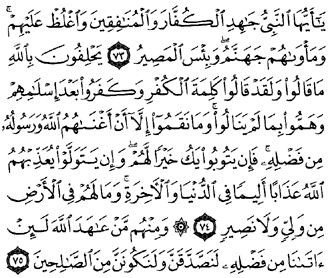 يَٰٓأَيُّهَا ٱلنَّبِيُّ جَٰهِدِ ٱلۡكُفَّارَ وَٱلۡمُنَٰفِقِينَ وَٱغۡلُظۡ عَلَيۡهِمۡۚ
وَمَأۡوَىٰهُمۡ جَهَنَّمُۖ وَبِئۡسَ ٱلۡمَصِيرُ ٧٣ يَحۡلِفُونَ بِٱللَّهِ
مَا قَالُواْ وَلَقَدۡ قَالُواْ كَلِمَةَ ٱلۡكُفۡرِ وَكَفَرُواْ بَعۡدَ إِسۡلَٰمِهِمۡ
وَهَمُّواْ بِمَا لَمۡ يَنَالُواْۚ وَمَا نَقَمُوٓاْ إِلَّآ أَنۡ أَغۡنَىٰهُمُ ٱللَّهُ وَرَسُولُهُۥ
مِن فَضۡلِهِۦۚ فَإِن يَتُوبُواْ يَكُ خَيۡرٗا لَّهُمۡۖ وَإِن يَتَوَلَّوۡاْ يُعَذِّبۡهُمُ
ٱللَّهُ عَذَابًا أَلِيمٗا فِي ٱلدُّنۡيَا وَٱلۡأٓخِرَةِۚ وَمَا لَهُمۡ فِي ٱلۡأَرۡضِ
مِن وَلِيّٖ وَلَا نَصِيرٖ ٧٤ ۞ وَمِنۡهُم مَّنۡ عَٰهَدَ ٱللَّهَ لَئِنۡ
ءَاتَىٰنَا مِن فَضۡلِهِۦ لَنَصَّدَّقَنَّ وَلَنَكُونَنَّ مِنَ ٱلصَّٰلِحِينَ ٧٥